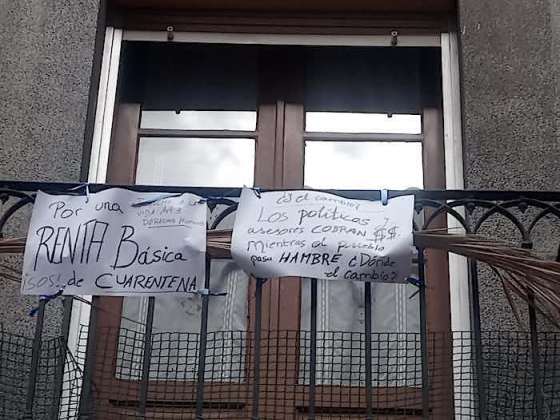 Por una
VIDA
RENTA Básica
¡SOS!.. de CUARENTENA
¿y el cambio?
Los políticos y
asesores COBRAN $$
Mientras el pueblo
pasa HAMBRE ¿Dónde
el cambio?